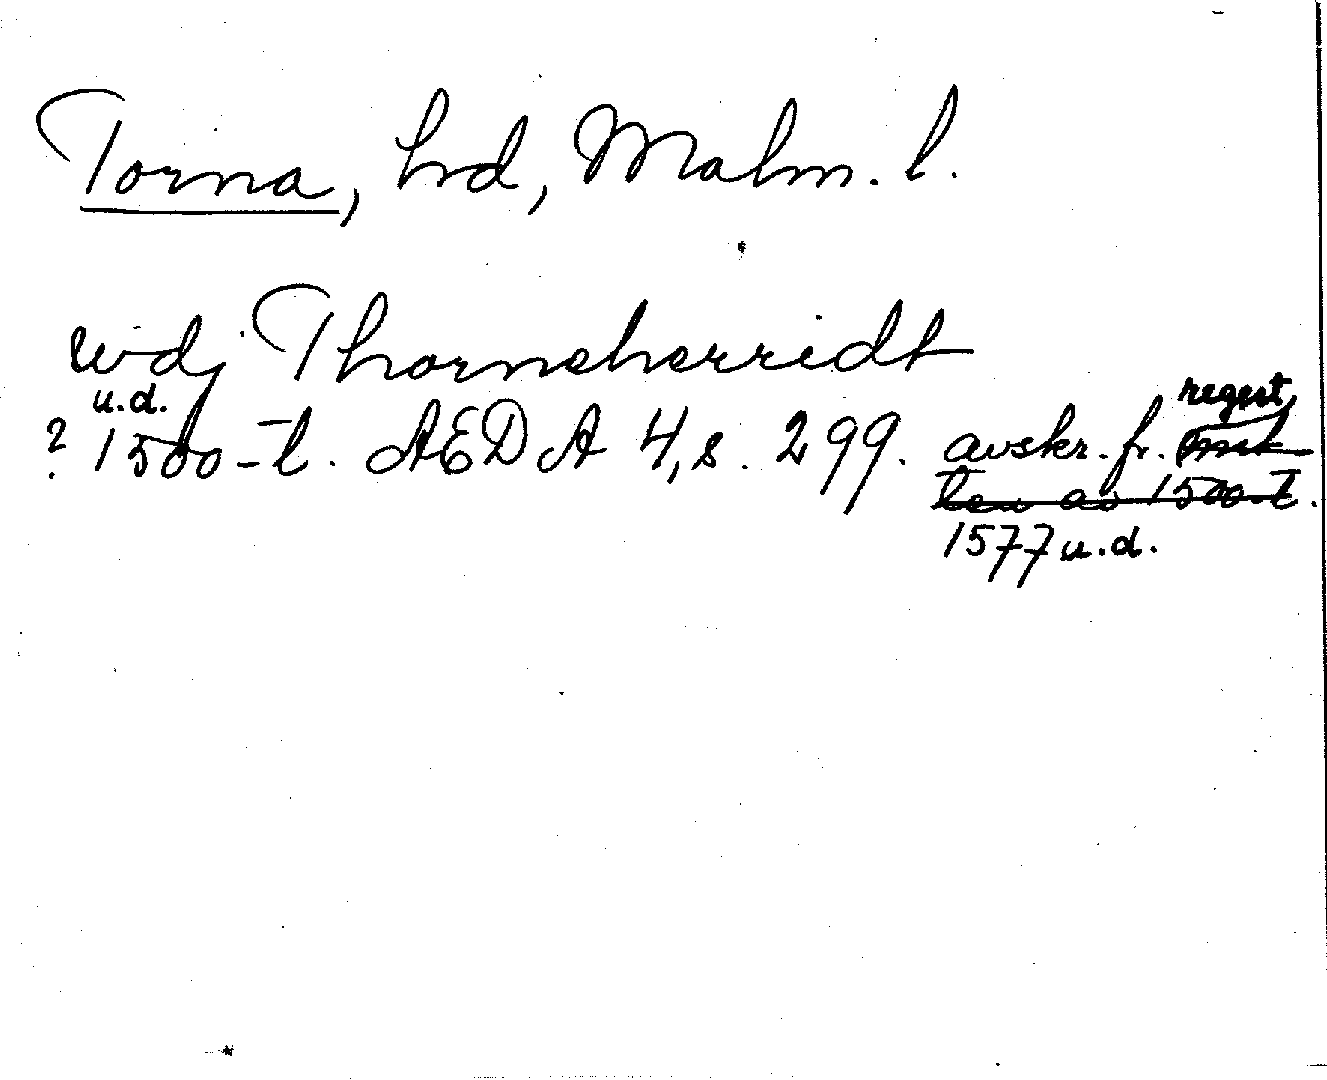 Torna, hd, Malm. l.
wdj Thorneherridt
u.d.
? 1500-t. AEDA 4, s. 299. avskr. fr. regest
ten av 1500-t.
1577 u.d.